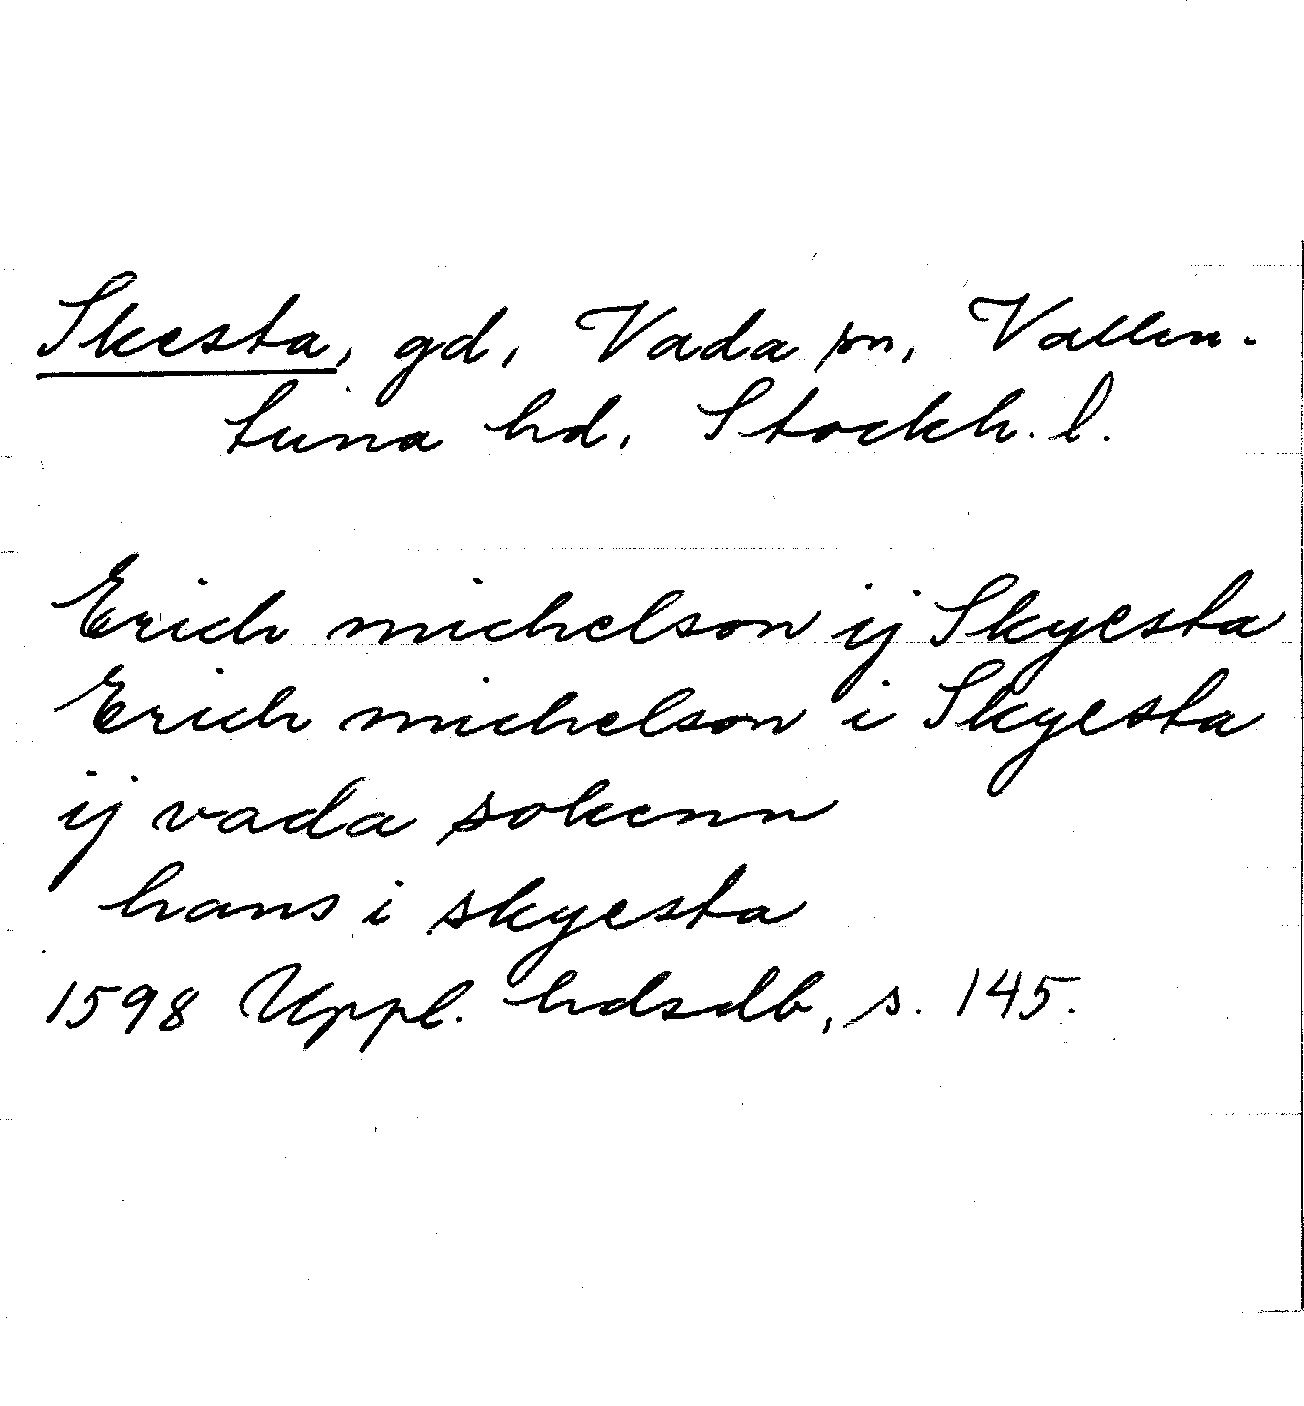 Skesta, gd, Vada sn, Vallen-
tuna hd, Stockh. l.
Erich michelson ij Skyesta
Erich michelson i Skyesta
ij vada sokenn
hans i skyesta
1598 Uppl. hdsdb, s. 145.